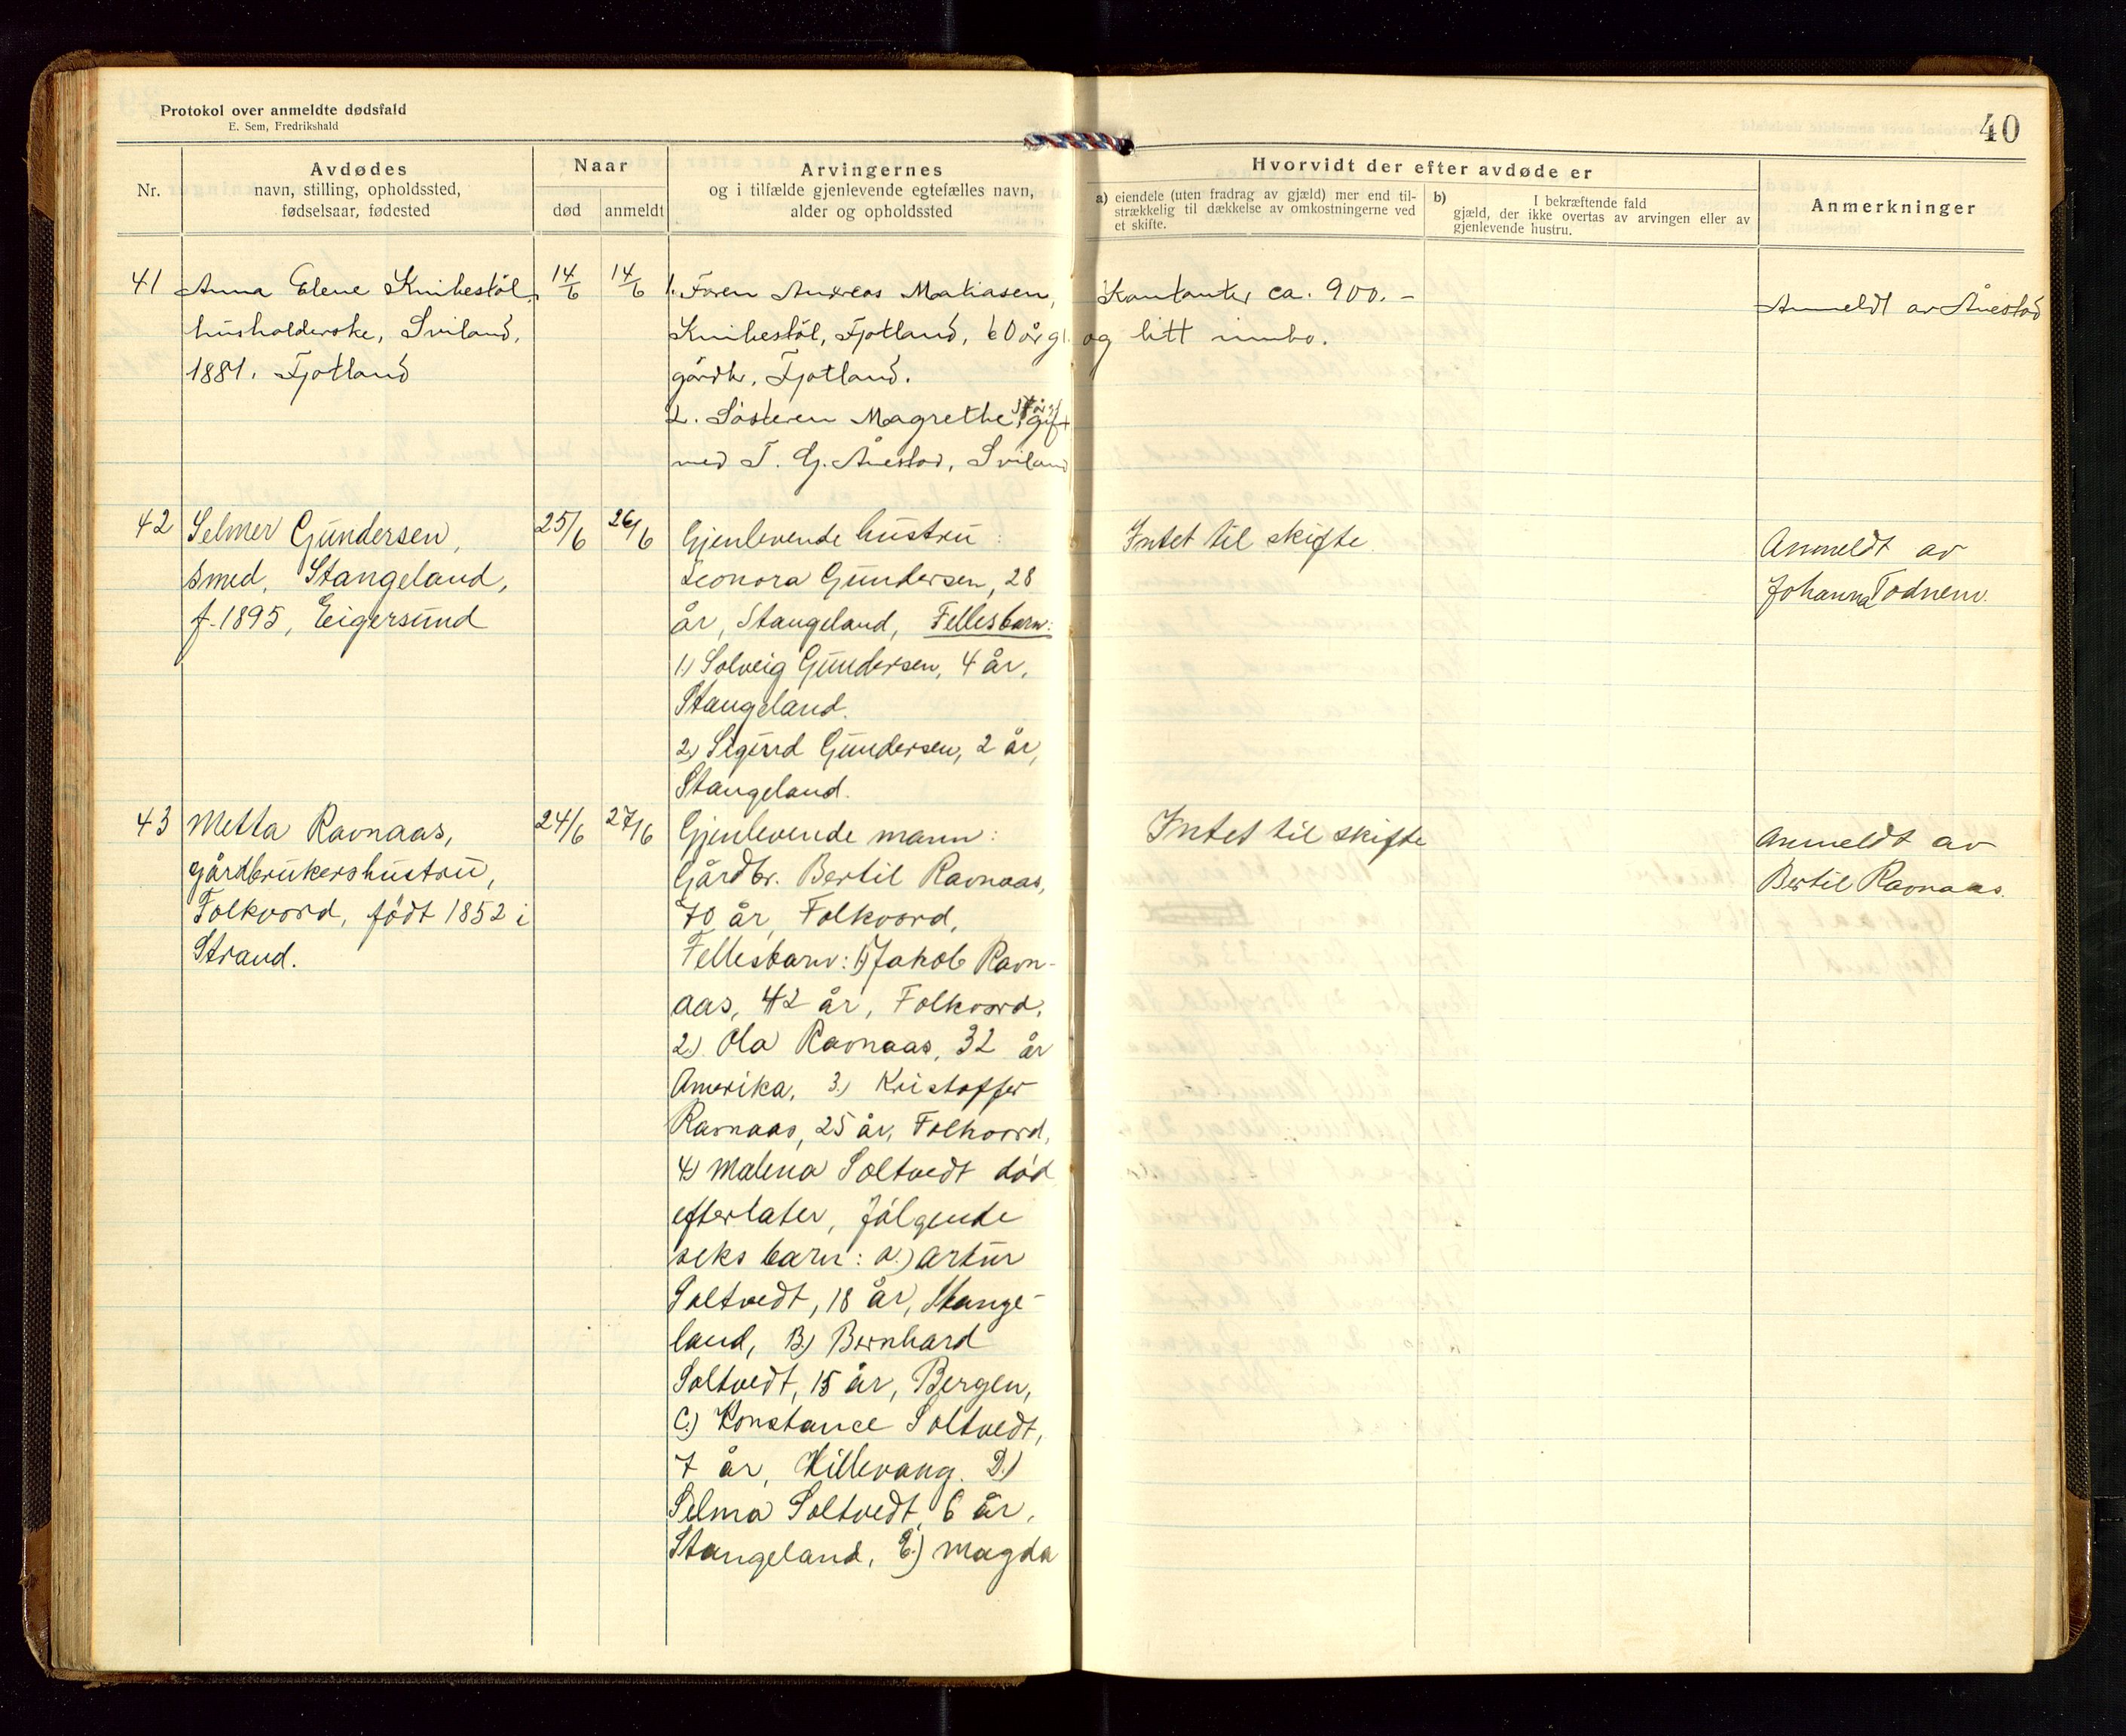 Protokol over anmeldte dødsfald
E. Sem, Fredrikshald
40
Nr.
Avdødes
navn, stilling, opholdssted,
fødselsaar, fødested
Naar
død
anmeldt
Arvingernes
og i tilfælde gjenlevende egtefælles navn,
alder og opholdssted
Hvorvidt der efter avdøde er
a) eiendele (uten fradrag av gjæld) mer end til-
strækkelig til dækkelse av omkostningerne ved
et skifte.
b) I bekræftende fald
gjæld, der ikke overtas av arvingen eller av
gjenlevende hustru.
Anmerkninger
41
Anna Elene Knibestöl,
husholderske, Sviland,
1881. Fjotland
14/6
14/6
1. Faren Andreas Matiasen,
Knibestöl, Fjotland, 60 år gl.
gårdbr, Fjotland.
2. Søsteren Magrethe gift
med T. G. Åvestad, Sviland
Kontanter ca. 900.-
og litt innbo.
Anmeldt av Åvestad
42
Selmer Gundersen,
smed, Stangeland,
f. 1895, Eigersund
25/6
26/6
Gjenlevende hustru:
Leonora Gundersen, 28
år, Stangeland, Fellesbarn:
1) Solveig Gundersen, 4 år,
Stangeland.
2) Sigurd Gundersen, 2 år,
Stangeland.
Intet til skifte
Anmeldt av
Johanna Todnem.
43
Metta Ravnaas,
gårdbrukershustru,
Folkvord, født 1852 i
Strand.
24/6
27/6
Gjenlevende mann:
Gårdbr. Bertil Ravnaas,
70 år, Folkvord,
Fellesbarn: 1) Jakob Ravn-
aas, 42 år, Folkvord.
2) Ola Ravnaas, 32 år
Amerika, 3.) Kristoffer
Ravnaas, 25 år, Folkvord,
4) Malena Soltvedt död
efterlater, følgende
seks barn: a.) Artur
Soltvedt, 18 år, Stange-
land, B) Bernhard
Soltvedt, 15 år, Bergen,
C.) Konstance Soltvedt,
7 år, Hillevang. D.)
Selma Soltvedt, 6 år,
Stangeland, E.) Magda
Intet til skifte
Anmeldt av
Bertil Ravnaas.